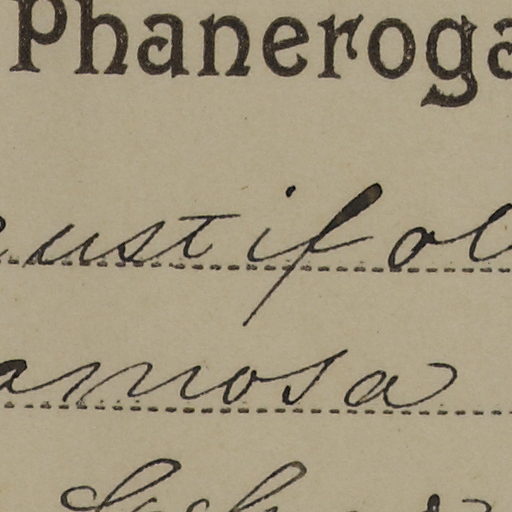 Phaneroga
ustifol
amosa